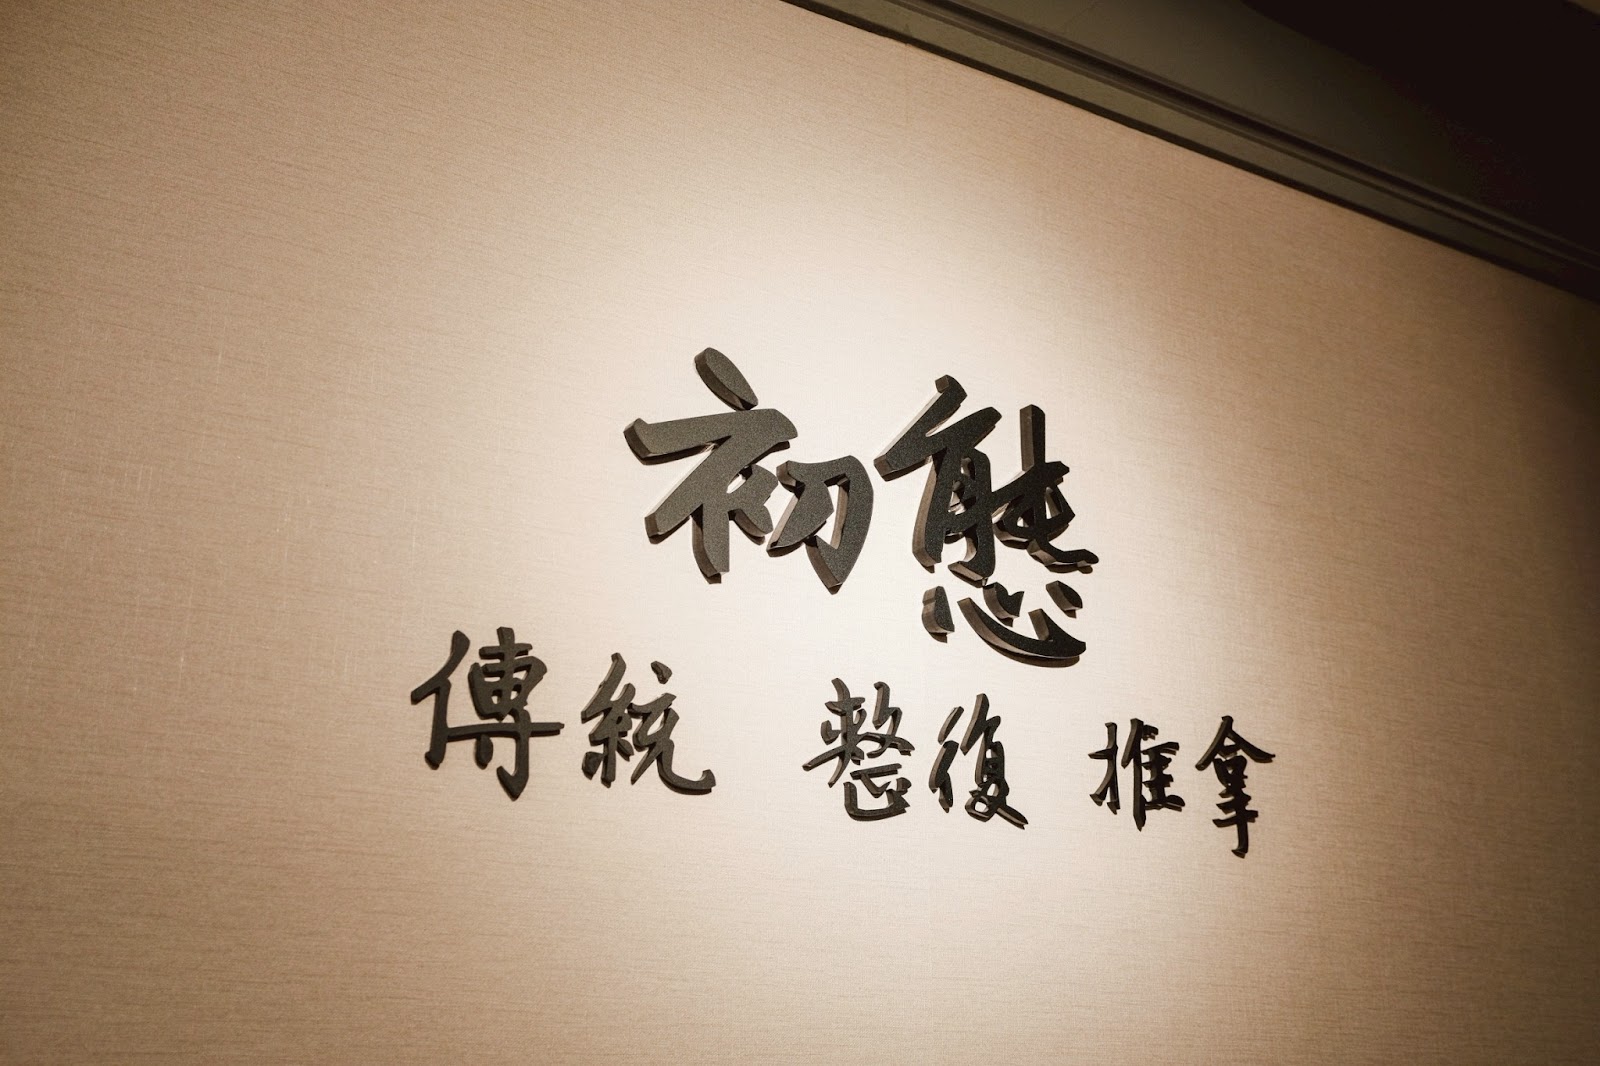 初態
傳統 整復 推拿